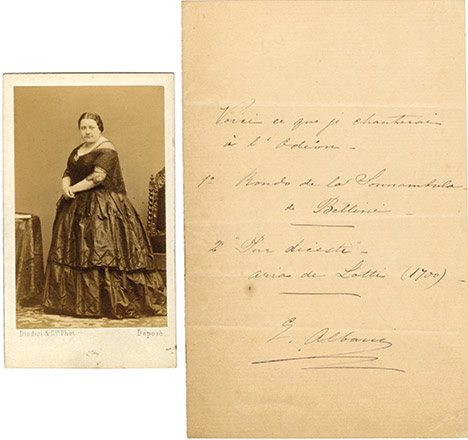 Disdéri & Cie Phot.
Déposé
Voici ce que je chanterai
à l'Odéon -
1º Rondo de la Sonnambula
de Bellini
2º "Pur dicesti" -
aria de Lotti (1700) -
E. Albani